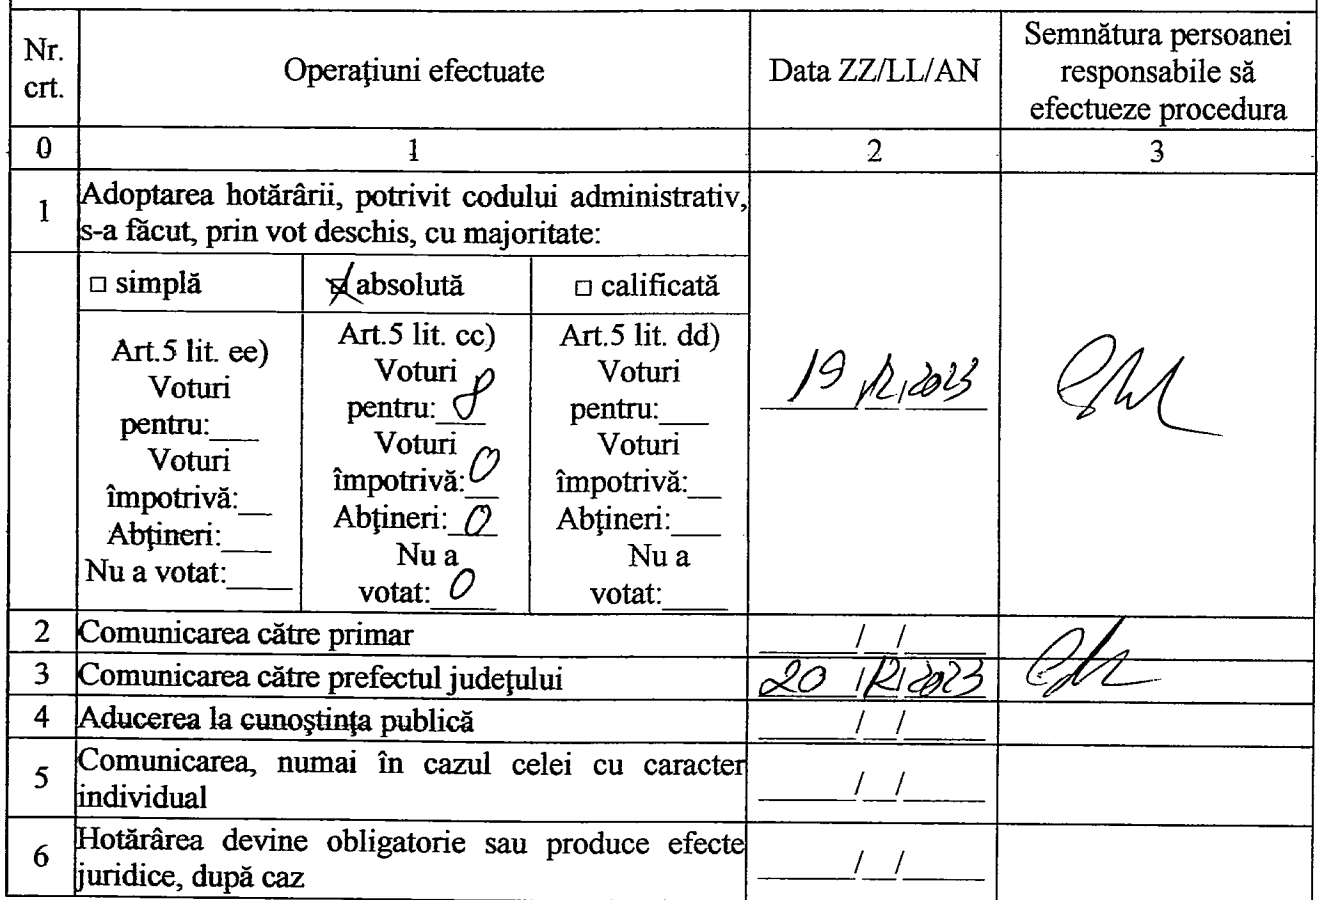 Nr. crt.
Operaţiuni efectuate
Data ZZ/LL/AN
Semnătura persoanei
responsabile să
efectueze procedura
0
1
2
3
1
Adoptarea hotărârii, potrivit codului administrativ,
s-a făcut, prin vot deschis, cu majoritate:
□ simplă
☒ absolută
□ calificată
Art.5 lit. ee)
Voturi
pentru:___
Voturi
împotrivă:__
Abţineri:___
Nu a votat:____
Art.5 lit. cc)
Voturi
pentru: 8
Voturi
împotrivă: 0
Abţineri: 0
Nu a
votat: 0
Art.5 lit. dd)
Voturi
pentru:___
Voturi
împotrivă:__
Abţineri:___
Nu a
votat:____
19/12/2023
2
Comunicarea către primar
___/__/____
3
Comunicarea către prefectul judeţului
20/12/2023
4
Aducerea la cunoştinţa publică
___/__/____
5
Comunicarea, numai în cazul celei cu caracter
individual
___/__/____
6
Hotărârea devine obligatorie sau produce efecte
juridice, după caz
___/__/____